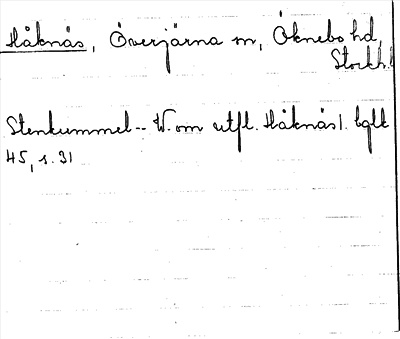 Håknäs, Överjärna sn, Öknebo hd,
Stockh.l
Stenkummel -- V. om utfl. Håknäs l. bglk
45, s. 31